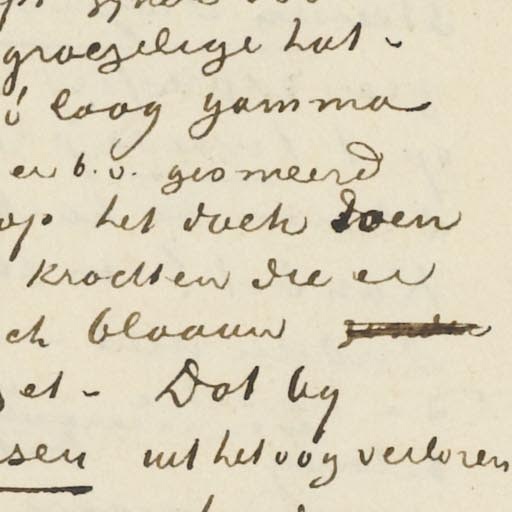 groezelige hut -
loog gamma
er b.v. gesmeerd
op het doek doen
krachten die er
ch blaauw
et - Dat by
sen uit het oog verloren